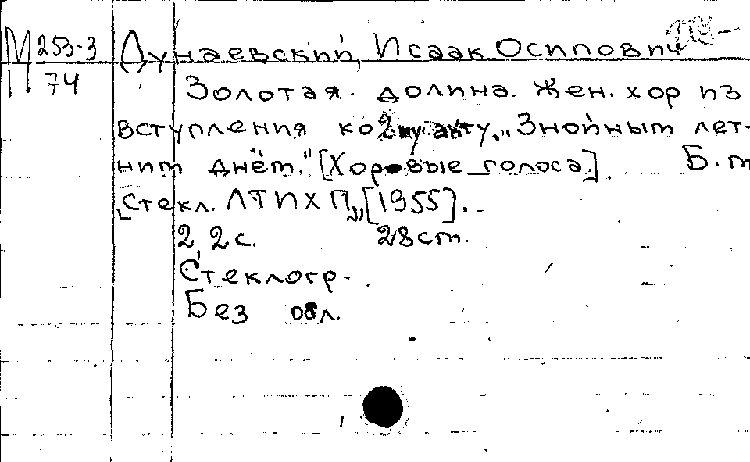 М 253-3 Дунаевский, Исаак Осипович
П 74 Золотая долина. Жен. хор из
вступления ко 2му акту, „Знойным лет-
ним днём." [Хоровые голоса]. Б.м.
[Стекл. ЛТИХП], [1955].
2, 2 с. 28 cm.
Стеклогр.
Без обл.